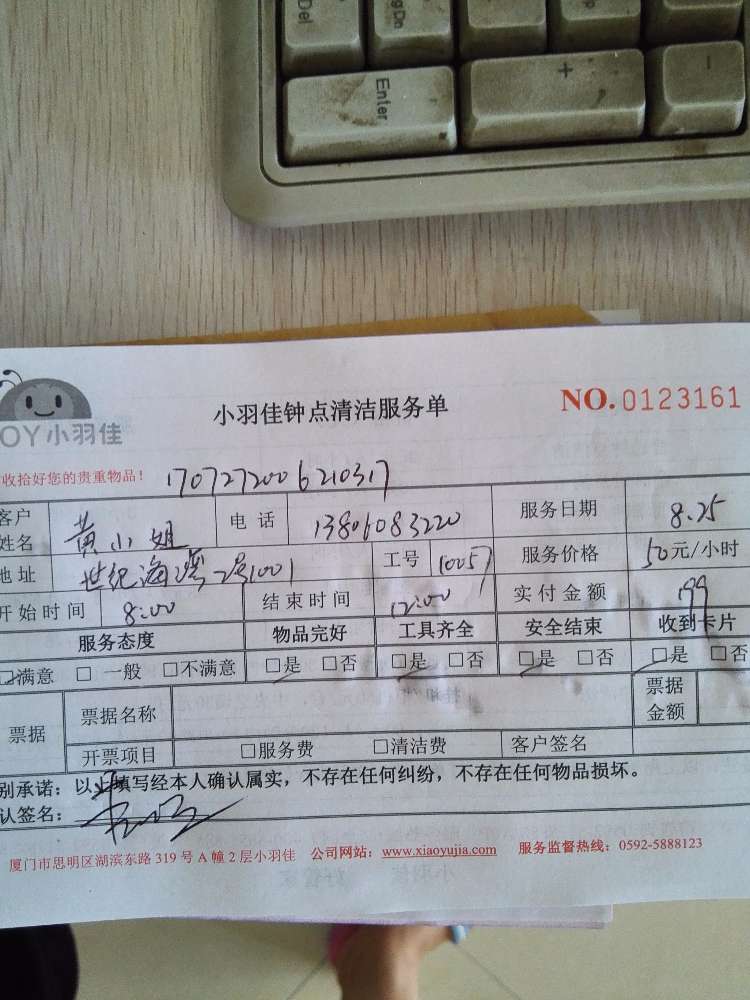 Del
PgDn
Enter
+
-
小羽佳钟点清洁服务单
NO.0123161
OY小羽佳
收拾好您的贵重物品! 1707272006210317
客户姓名 黄小姐 电话 13806083220 服务日期 8.25
地址 世纪海湾2号1001 工号 1005 服务价格 50元/小时
开始时间 8:00 结束时间 12:00 实付金额 199
服务态度 物品完好 工具齐全 安全结束 收到卡片
□满意 □一般 □不满意 □是 □否 □是 □否 □是 □否 □是 □否
票据 票据名称 票据金额
开票项目 □服务费 □清洁费 客户签名
别承诺:以上填写经本人确认属实,不存在任何纠纷,不存在任何物品损坏。
认签名:
厦门市思明区湖滨东路319号A幢2层小羽佳 公司网站:www.xiaoyujia.com 服务监督热线:0592-5888123